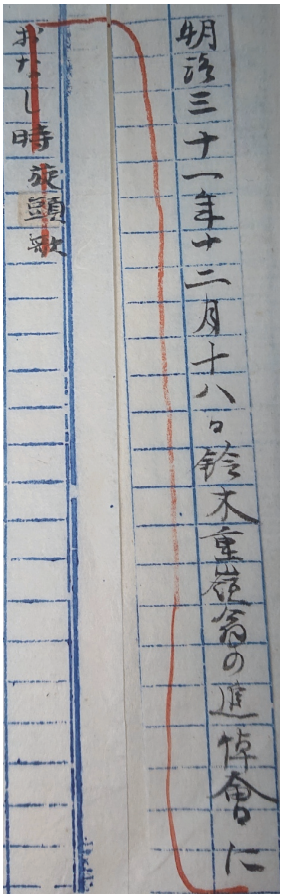 明治三十一年十二月十八日鈴木重嶺翁の進悼會に
おなし時旋頭歌